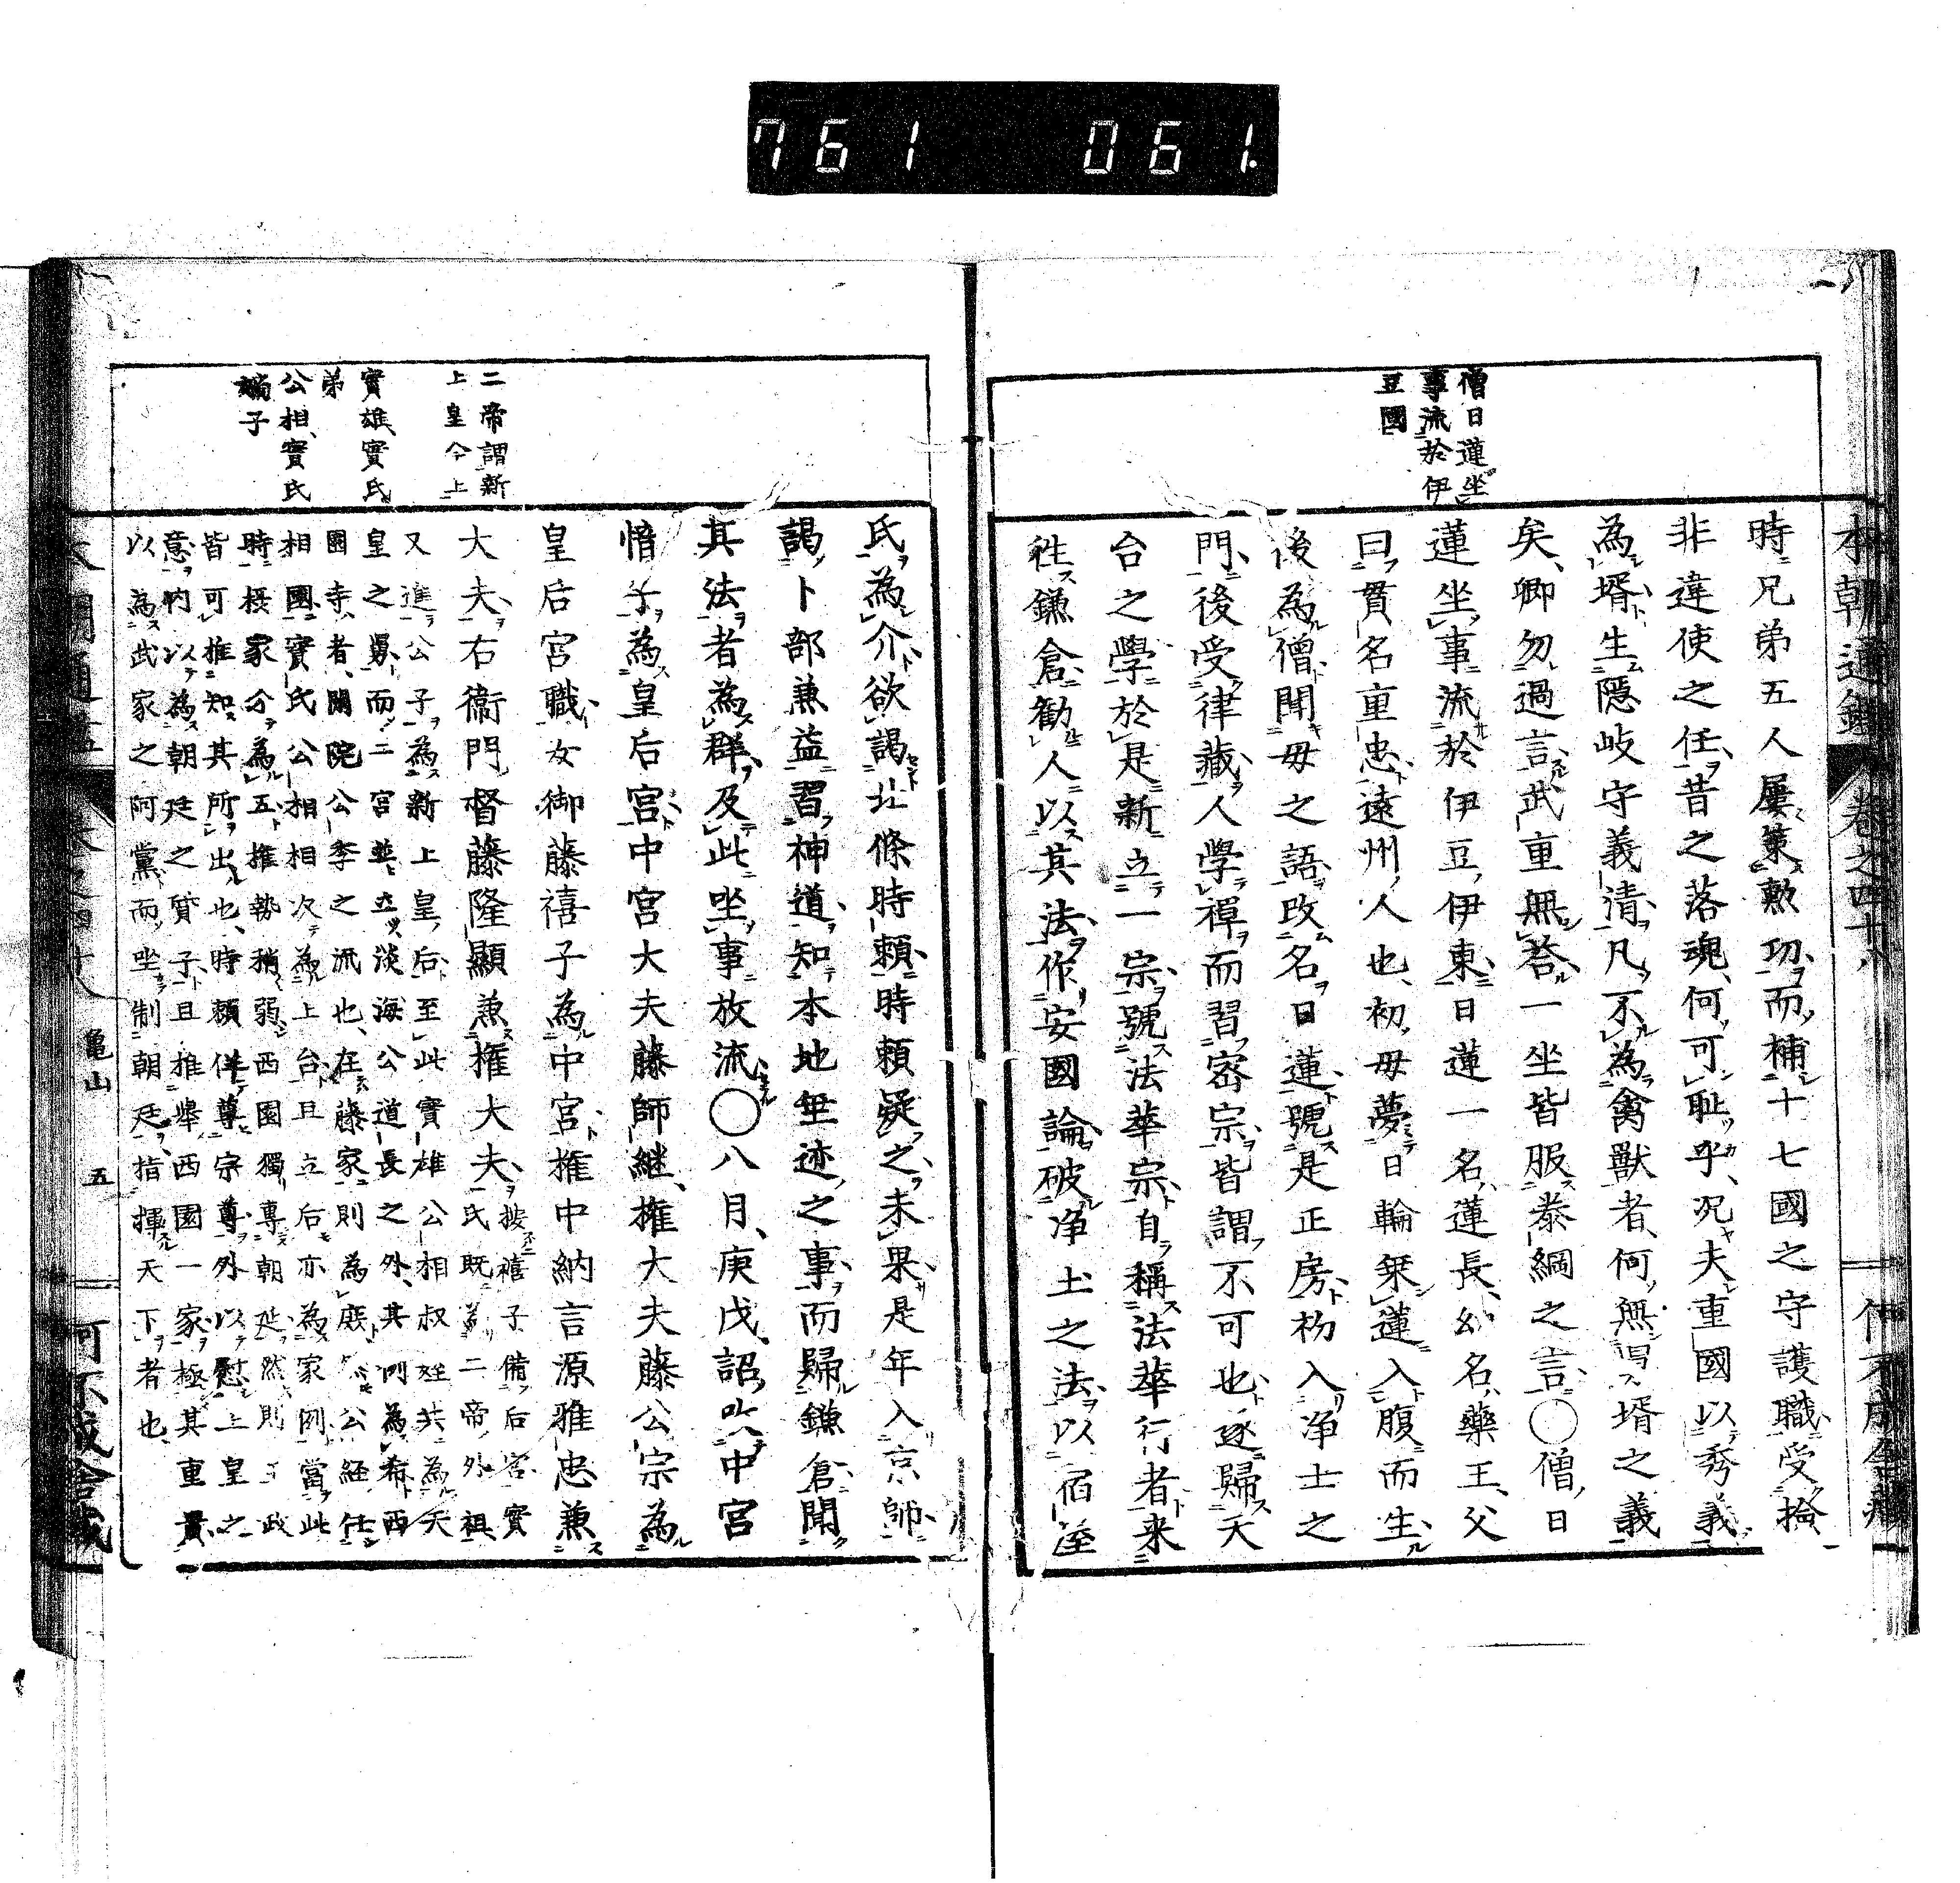 761 061.
本朝通鑑 卷之四十八
僧日蓮坐
事流於伊
豆國
時兄弟五人屢策勲功而補十七國之守護職受撿
非違使之任昔之落魂何可恥乎况夫重國以秀義
為壻生隱岐守義清凡不為禽獸者何無壻之義
矣卿勿過言武重無荅一坐皆服泰綱之言○僧日
蓮坐事流於伊豆伊東日蓮一名蓮長幼名藥王父
曰貫名重忠遠州人也初母夢日輪乗蓮入腹而生
後為僧聞母之語改名日蓮號是正房初入浄土之
門後受律藏人學禪而習密宗皆謂不可也遂歸天
台之學於是新立一宗號法華宗自稱法華行者来
徃鎌倉勧人以其法作安國論破浄土之法以宿
氏為介欲謁北條時頼時頼疑之未果是年入京師
謁卜部兼益習神道知本地垂迹之事而歸鎌倉聞
其法者為群及此坐事放流○八月庚戊詔以中宮
愔子為皇后宮中宮大夫藤師継權大夫藤公宗為
皇后宮職女御藤禧子為中宮權中納言源雅忠兼
大夫右衞門督藤隆顯兼權大夫
按禧子備后宮實
氏既為二帝外祖
又進公子為新上皇后至此實雄公相叔姪共為天
皇之舅而二宮並立淡海公道長之外其例為希西
園寺者閑院公季之流也在藤家則為庶公経任
相國實氏公相相次為上台且立后亦為家例當此
時摂家分為五推勢稍弱西園獨專朝廷然則政
皆可推知其所出也時頼佯尊宗尊外以慰上皇之
意内以為朝廷之質子且推擧西園一家極其重貴
以為武家之阿黨而坐制朝廷指揮天下者也
二帝謂新
上皇今上
實雄實氏
弟
公相實氏
子
亀山 五